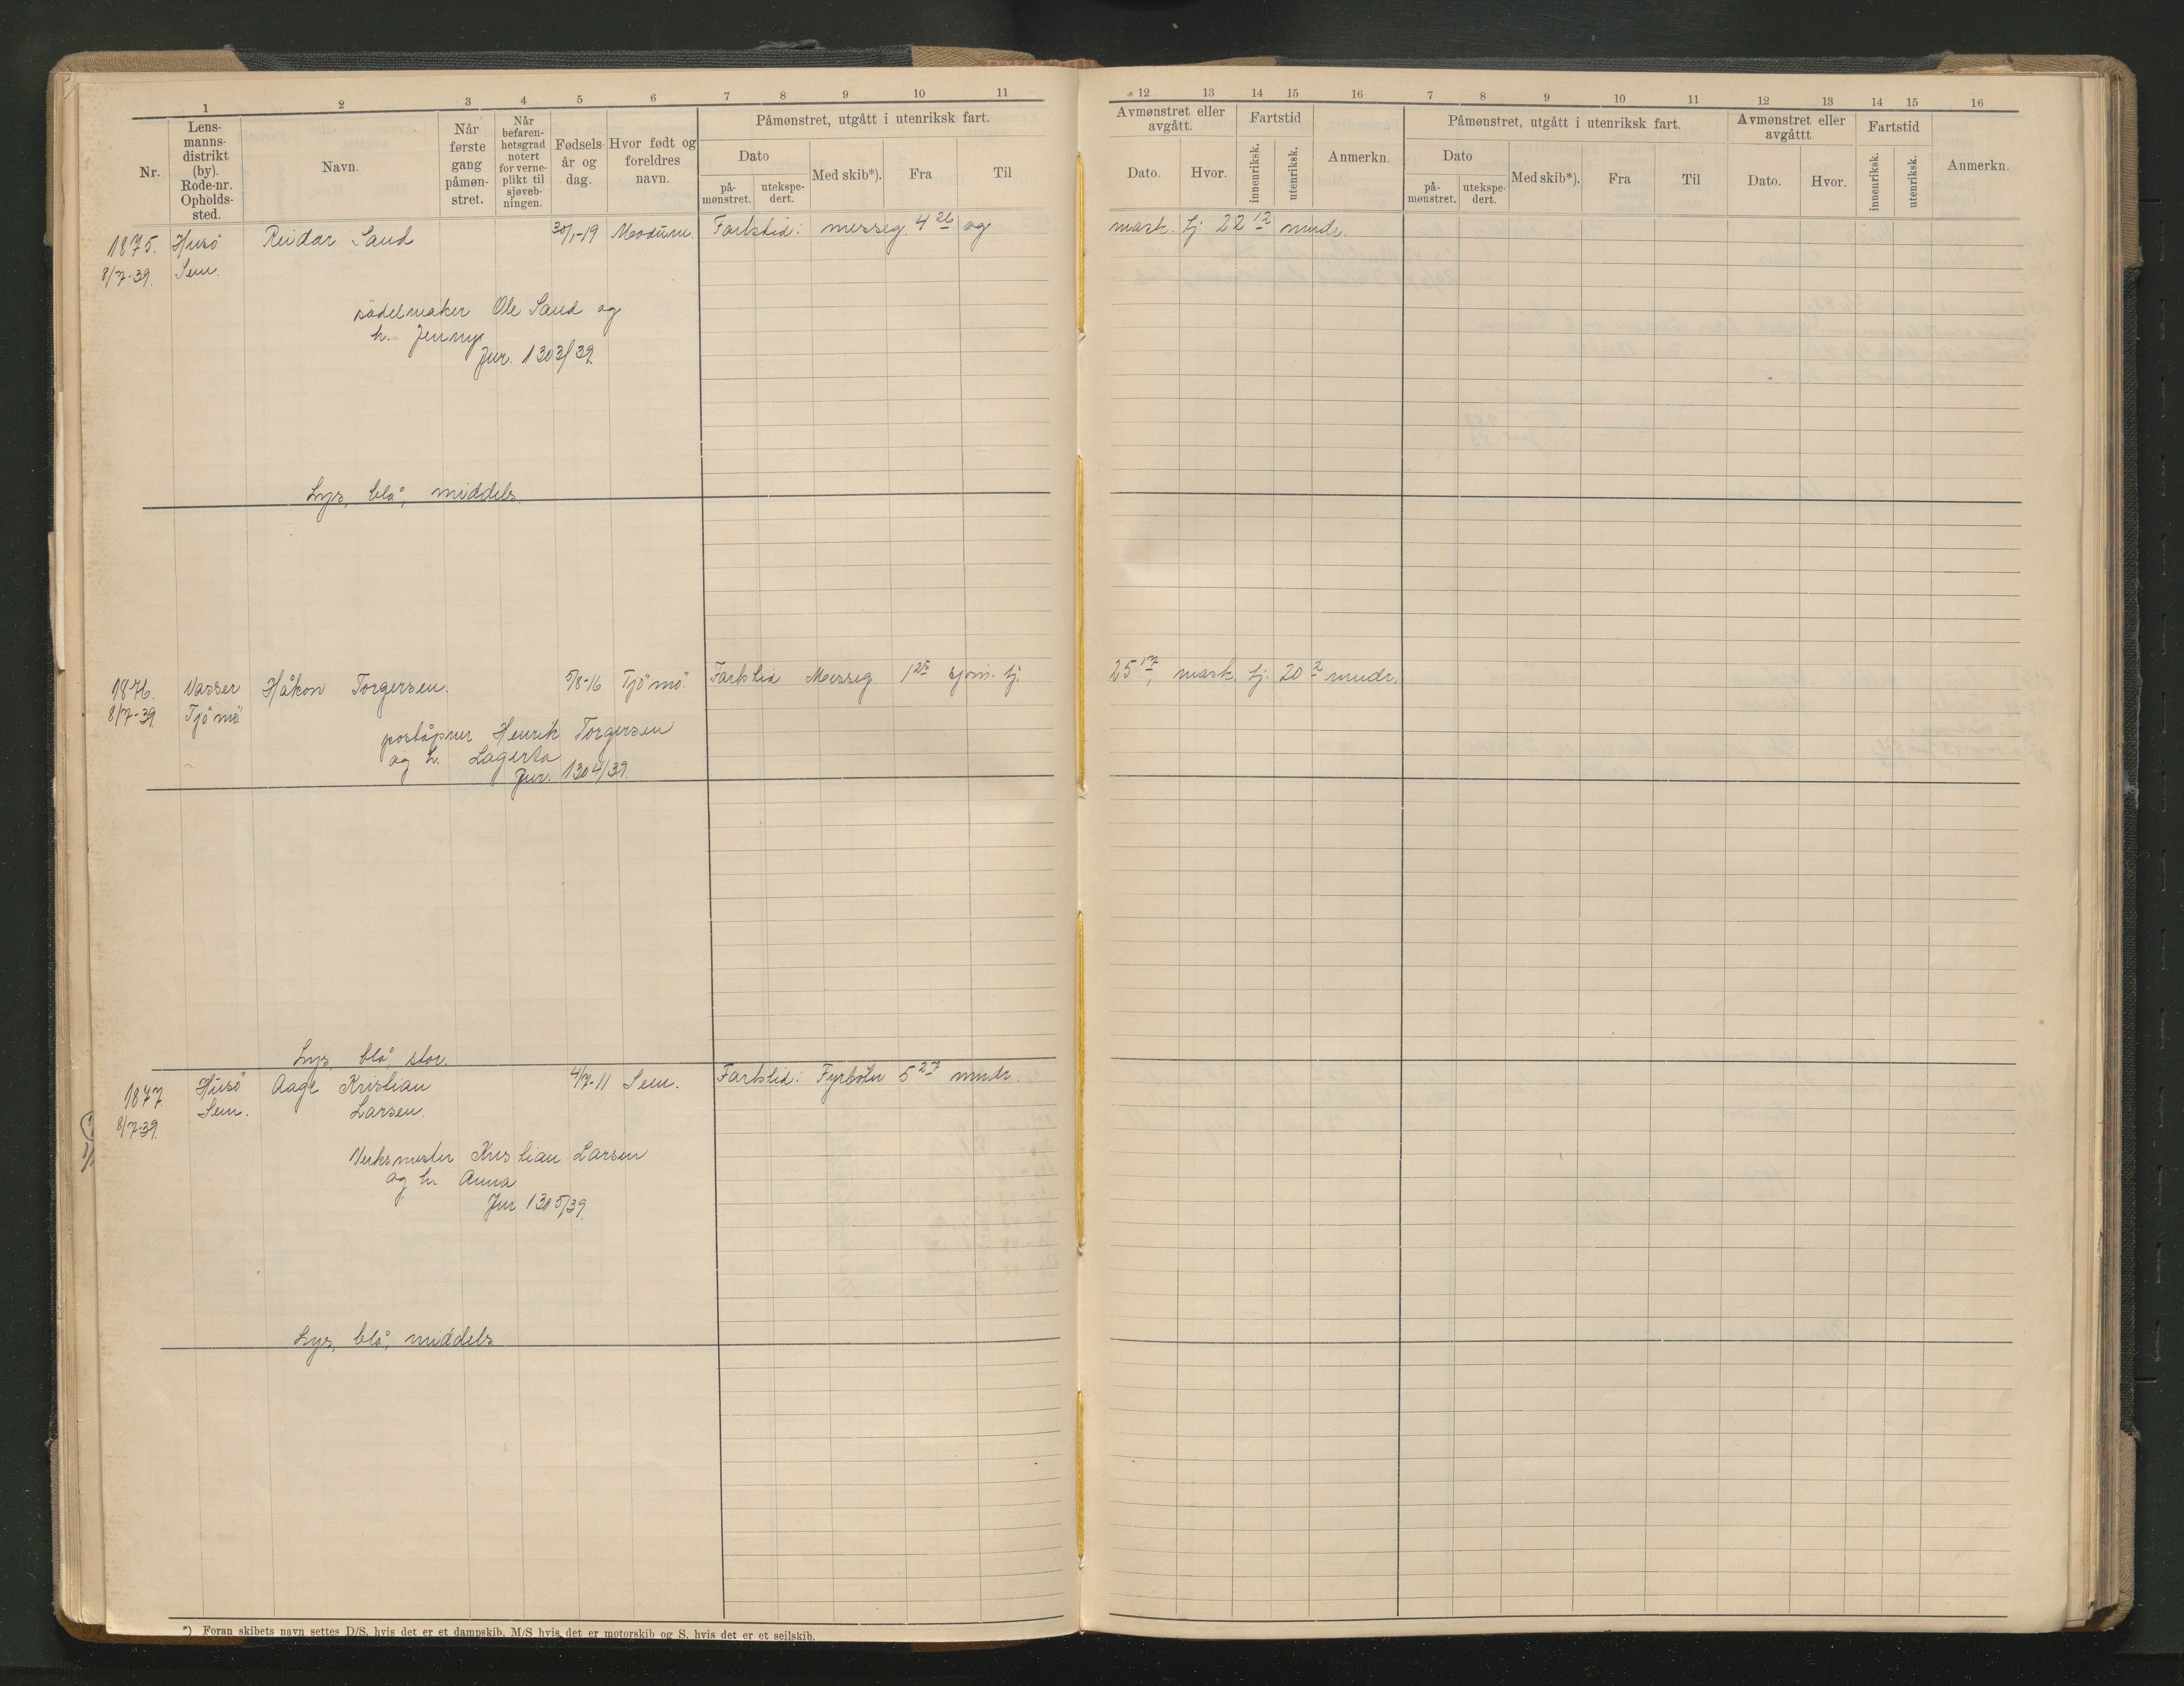 1 2 3 4 5 6 7 8 9 10 11
Nr.
Lens-
manns-
distrikt
(by).
Rode-nr.
Opholds-
sted.
Navn.
Når
første
gang
påmøn-
stret.
Når
befaren-
hetsgrad
notert
for verne-
plikt til
sjøveb-
ningen.
Fødsels-
år og
dag.
Hvor født og
foreldres
navn.
Påmønstret, utgått i utenriksk fart.
Dato
på-
mønstret.
utekspe-
dert.
Med skib*).
Fra
Til
12 13 14 15 16 7 8 9 10 11 12 13 14 15 16
Avmønstret eller
avgått.
Dato.
Hvor.
Fartstid
innenriksk.
utenriksk.
Anmerkn.
Påmønstret, utgått i utenriksk fart.
Dato
på-
mønstret.
utekspe-
dert.
Med skib*).
Fra
Til
Avmønstret eller
avgåttt.
Dato.
Hvor.
Fartstid
innenriksk.
utenriksk.
Anmerkn.
1875. Husö Reidar Sand 30/1-19 Modum. Fartstid: messeg. 4 26 og mask. tj. 22 12 mndr.
8/7-39. Sem.
sadelmaker Ole Sand og
h. Jenny
Jur. 1303/39
Lys, blå, middels.
1876. Vasser Håkon Torgersen. 5/8-16 Tjömö. Fartstid Messeg. 1 25 sjøm. tj. 25 17, mask. tj. 20 2 mndr.
8/7-39 Tjömö
poståpner Henrik Torgersen
og h. Lagerta
Jur. 1304/39.
Lys, blå, stor.
1877. Husö Aage Kristian 4/7-11 Sem. Fartstid: Fyrböter 5 27 mndr.
8/7-39. Sem. Larsen.
Verksmester Kristian Larsen
og h. Anna
Jur 1305/39.
Lys, blå, middels
*) Foran skibets navn settes D/S, hvis det er et dampskib, M/S hvis det er motorskib og S, hvis det er et seilskib.